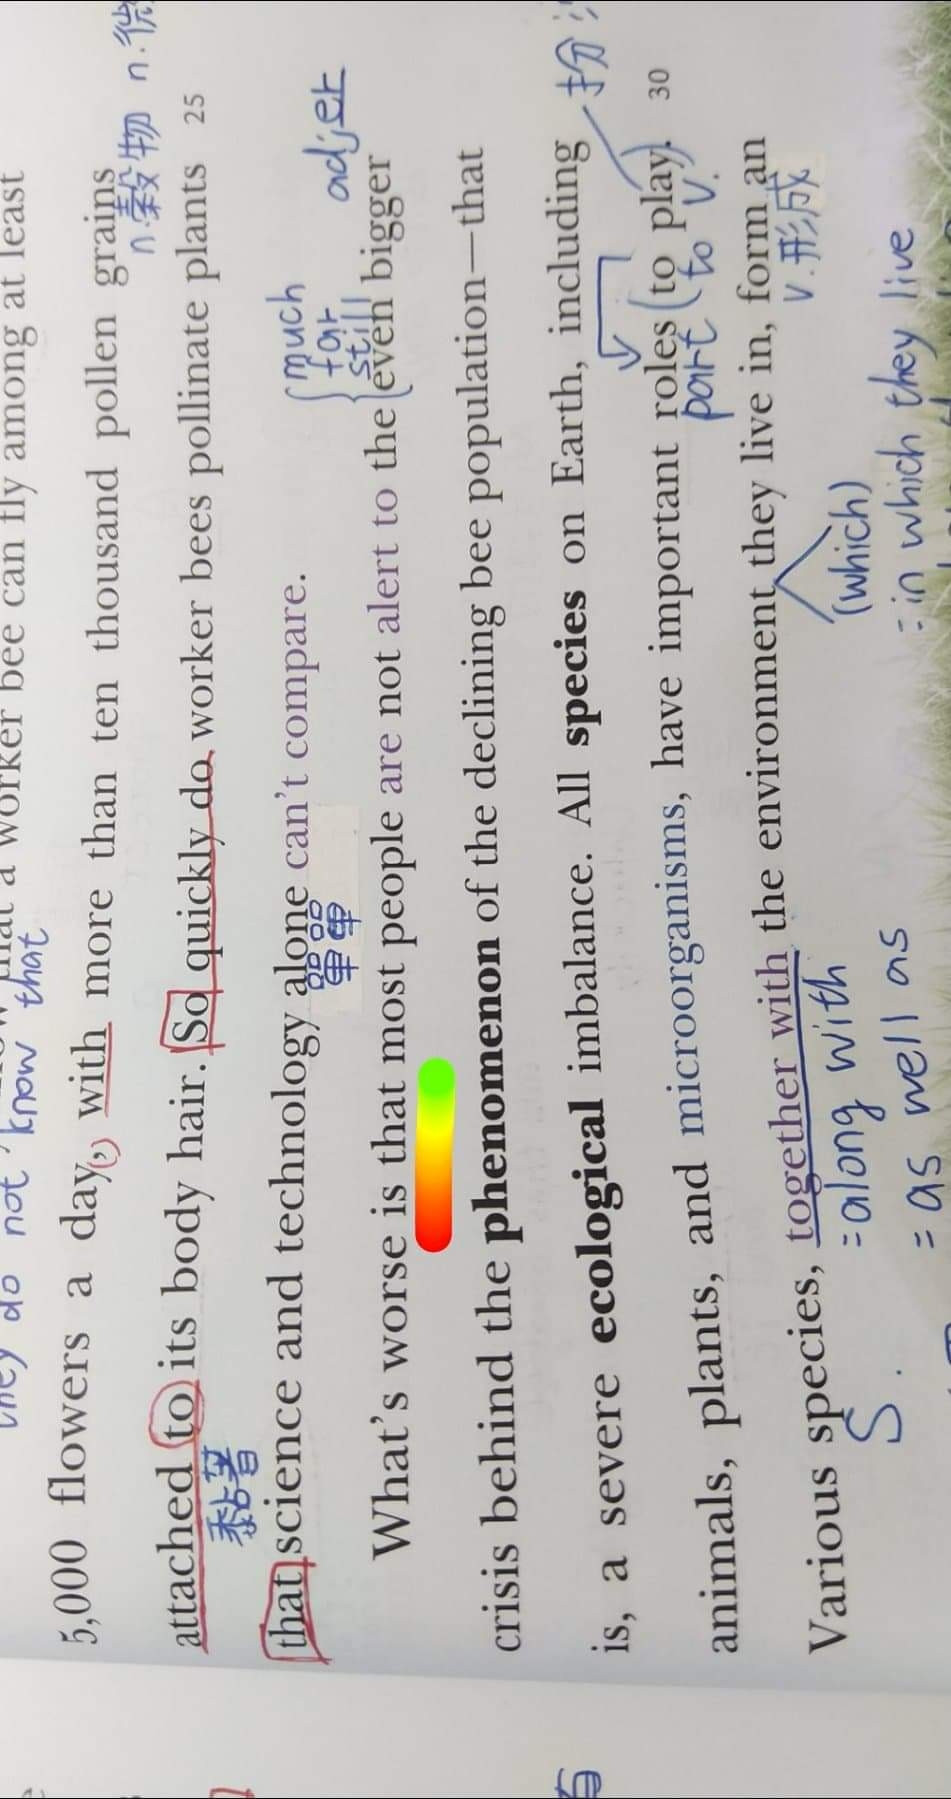 they do not know that
worker bee can fly among at least
5,000 flowers a day(,) with more than ten thousand pollen grains
n.穀物 n.
attached to its body hair. So quickly do worker bees pollinate plants 25
黏著
that science and technology alone can't compare.
單單
much
far
still
adj比
What's worse is that most people are not alert to the even bigger
crisis behind the phenomenon of the declining bee population—that
is, a severe ecological imbalance. All species on Earth, including
扮
animals, plants, and microorganisms, have important roles (to play). 30
part to V.
Various species, together with the environment they live in, form an
S.
= along with
(which)
v.形成
= as well as
= in which they live